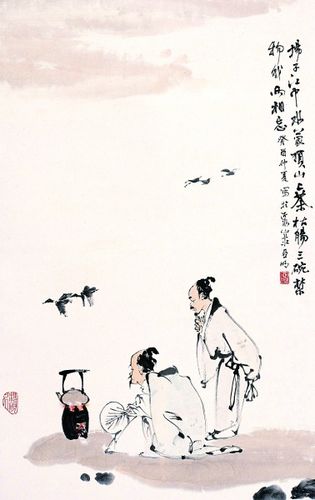 揚子江中水蒙頂山上茶枯腸三碗禁
物我兩相忘癸酉仲夏寫於亞明